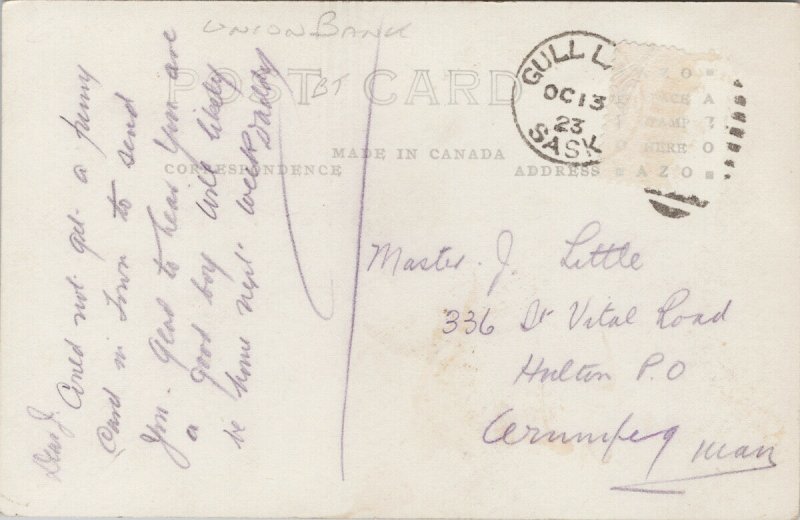 UNION BANK
POST CARD
BT
MADE IN CANADA
CORRESPONDENCE
ADDRESS
AZO
PLACE
STAMP
HERE
AZO
GULL L
OC 13
23
SASK
Dear J.
Could not get a funny
Card in Town to send
you. Glad to hear you are
a good boy will likely
be home next week Daddy
Master. J. Little
336 St Vital Road
Hulton P.O
Winnipeg Man